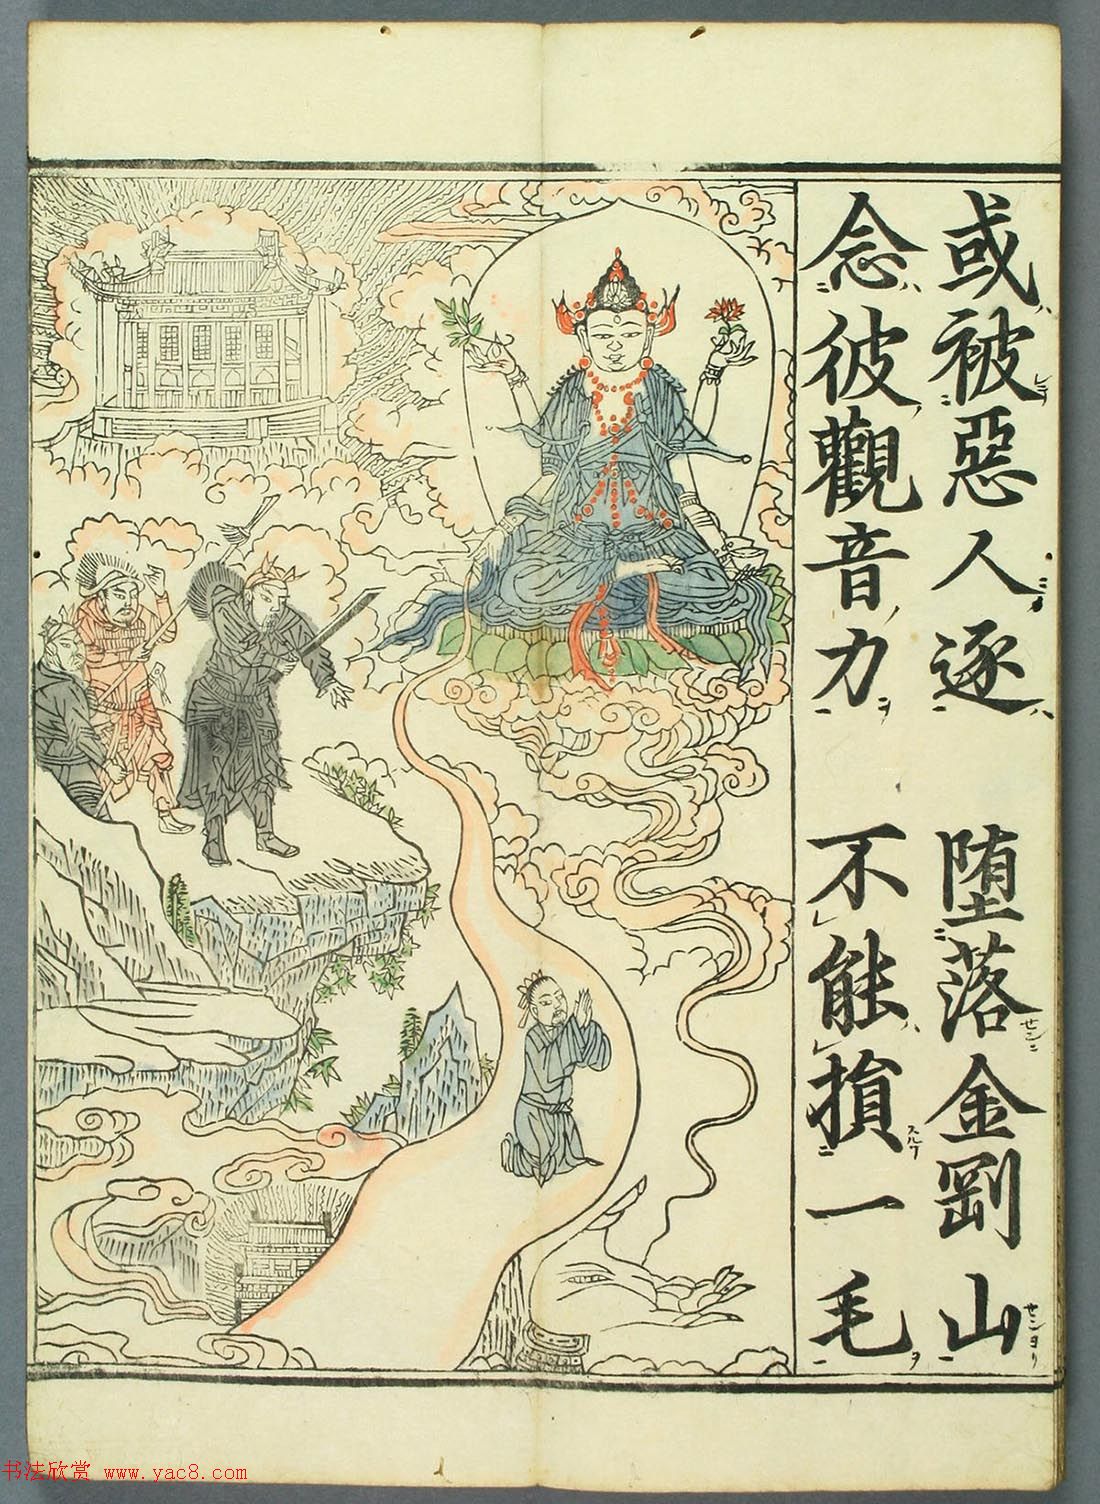 或被惡人逐　堕落金剛山
念彼觀音力　不能損一毛
书法欣赏 www.yac8.com